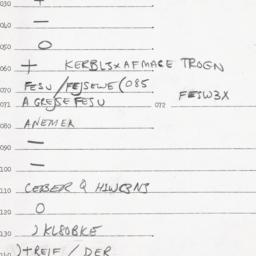 030 +
040 —
050 O
060 + KERBLSXAFMAGE TROGN
070 FESU / FEJSEWE (085
071 A GREJSE FESU 072 FEJW3X
080 ANEMER
090 —
100 —
110
120 O
130 ) KLROBKE
) + REIF / DER